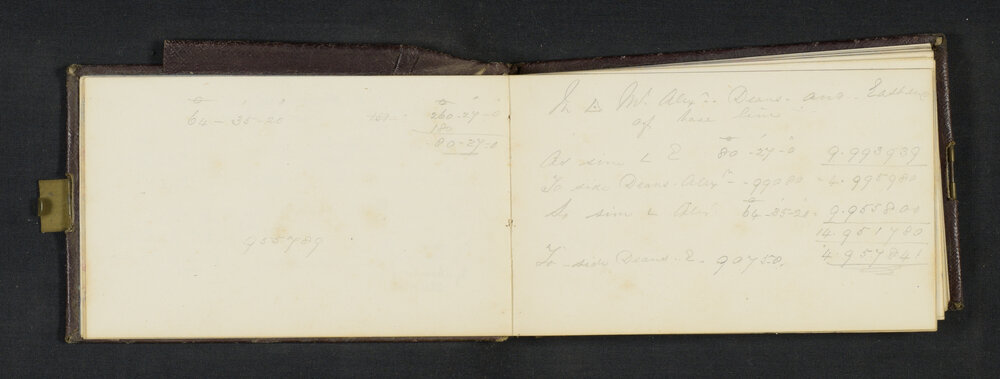 64 - 35 - 20
260 - 27 - 0
180
80 - 27 - 0
955789
In △ Mt Alexr Deans and East end
of base line
As sine ∠ E 80 - 27 - 0 9.993939
To side Deans-Alexr - 99080 - 4.995980
So sine ∠ Alexr 64 - 35 - 20 9.955800
14.951780
To side Deans-E. 90758. 4.957841